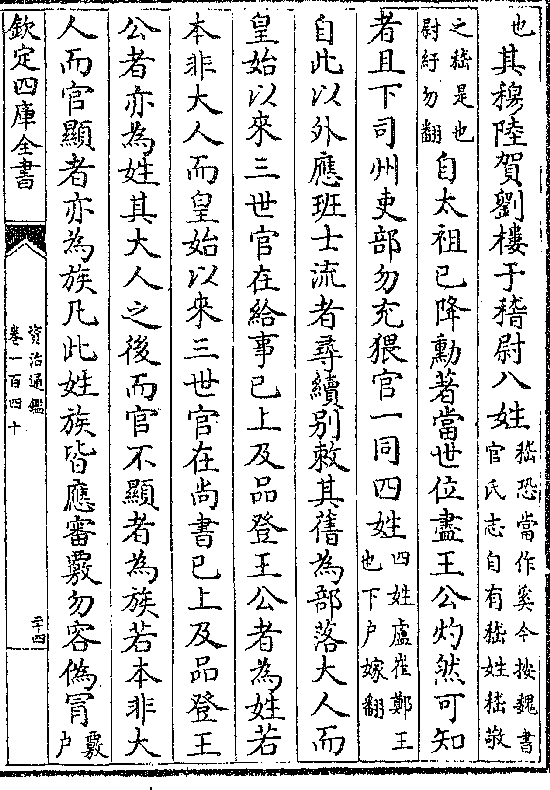 也其穆陸賀劉樓于稽尉八姓嵇恐當作奚今按魏書官氏志自有嵇姓嵇敬
之嵇是也尉紆勿翻自太祖已降勳著當世位盡王公灼然可知
者且下司州吏部勿充猥官一同四姓四姓盧崔鄭王也下户嫁翻
自此以外應班士流者尋續别敕其舊為部落大人而
皇始以來三世官在給事已上及品登王公者為姓若
本非大人而皇始以來三世官在尚書已上及品登王
公者亦為姓其大人之後而官不顯者為族若本非大
人而官顯者亦為族凡此姓族皆應審覈勿容偽冒覈户
欽定四庫全書
資治通鑑
卷一百四十
二十四